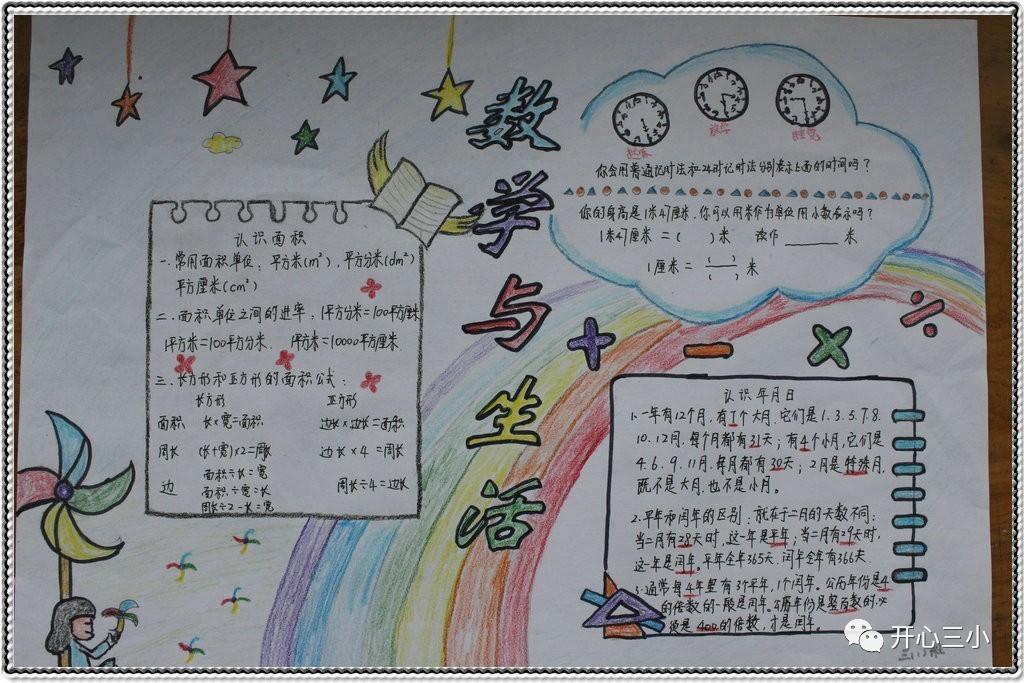 数学与生活
起床
放学
睡觉
你会用普通记时法和24时记时法分别表示上面的时间吗?
你的身高是1米47厘米,你可以用米作为单位用小数表示吗?
1米47厘米=( )米 读作______米
1厘米=( )/( )米
认识面积
一.常用面积单位:平方米(m²),平方分米(dm²)
平方厘米(cm²)
二.面积单位之间的进率:1平方分米=100平方厘米
1平方米=100平方分米. 1平方米=10000平方厘米.
三.长方形和正方形的面积公式:
长方形 正方形
面积 长×宽=面积 边长×边长=面积
周长 (长+宽)×2=周长 边长×4=周长
面积÷长=宽
边 面积÷宽=长 周长÷4=边长
周长÷2-长=宽
认识年月日
1.一年有12个月,有7个大月.它们是1.3.5.7.8.
10.12月.每个月都有31天;有4个小月,它们是
4.6.9.11月.每月都有30天;2月是特殊月,
既不是大月.也不是小月。
2.平年和闰年的区别:就在于二月的天数不同:
当二月有28天时,这一年是平年;当二月有29天时,
这一年是闰年。平年全年365天.闰年全年有366天.
3.通常每4年里有3个平年,1个闰年。公历年份是4
的倍数的一般是闰年。公历年份是整百数的.必
须是400的倍数,才是闰年。
开心三小